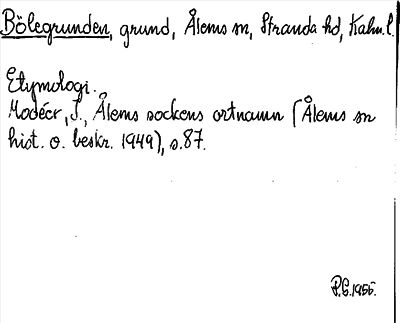 Bölegrunden, grund, Ålems sn, Stranda hd, Kalm. l.
Etymologi.
Modéer, I., Ålems sockens ortnamn (Ålems sn
hist. o. beskr. 1949), s. 87.
P.G. 1955.